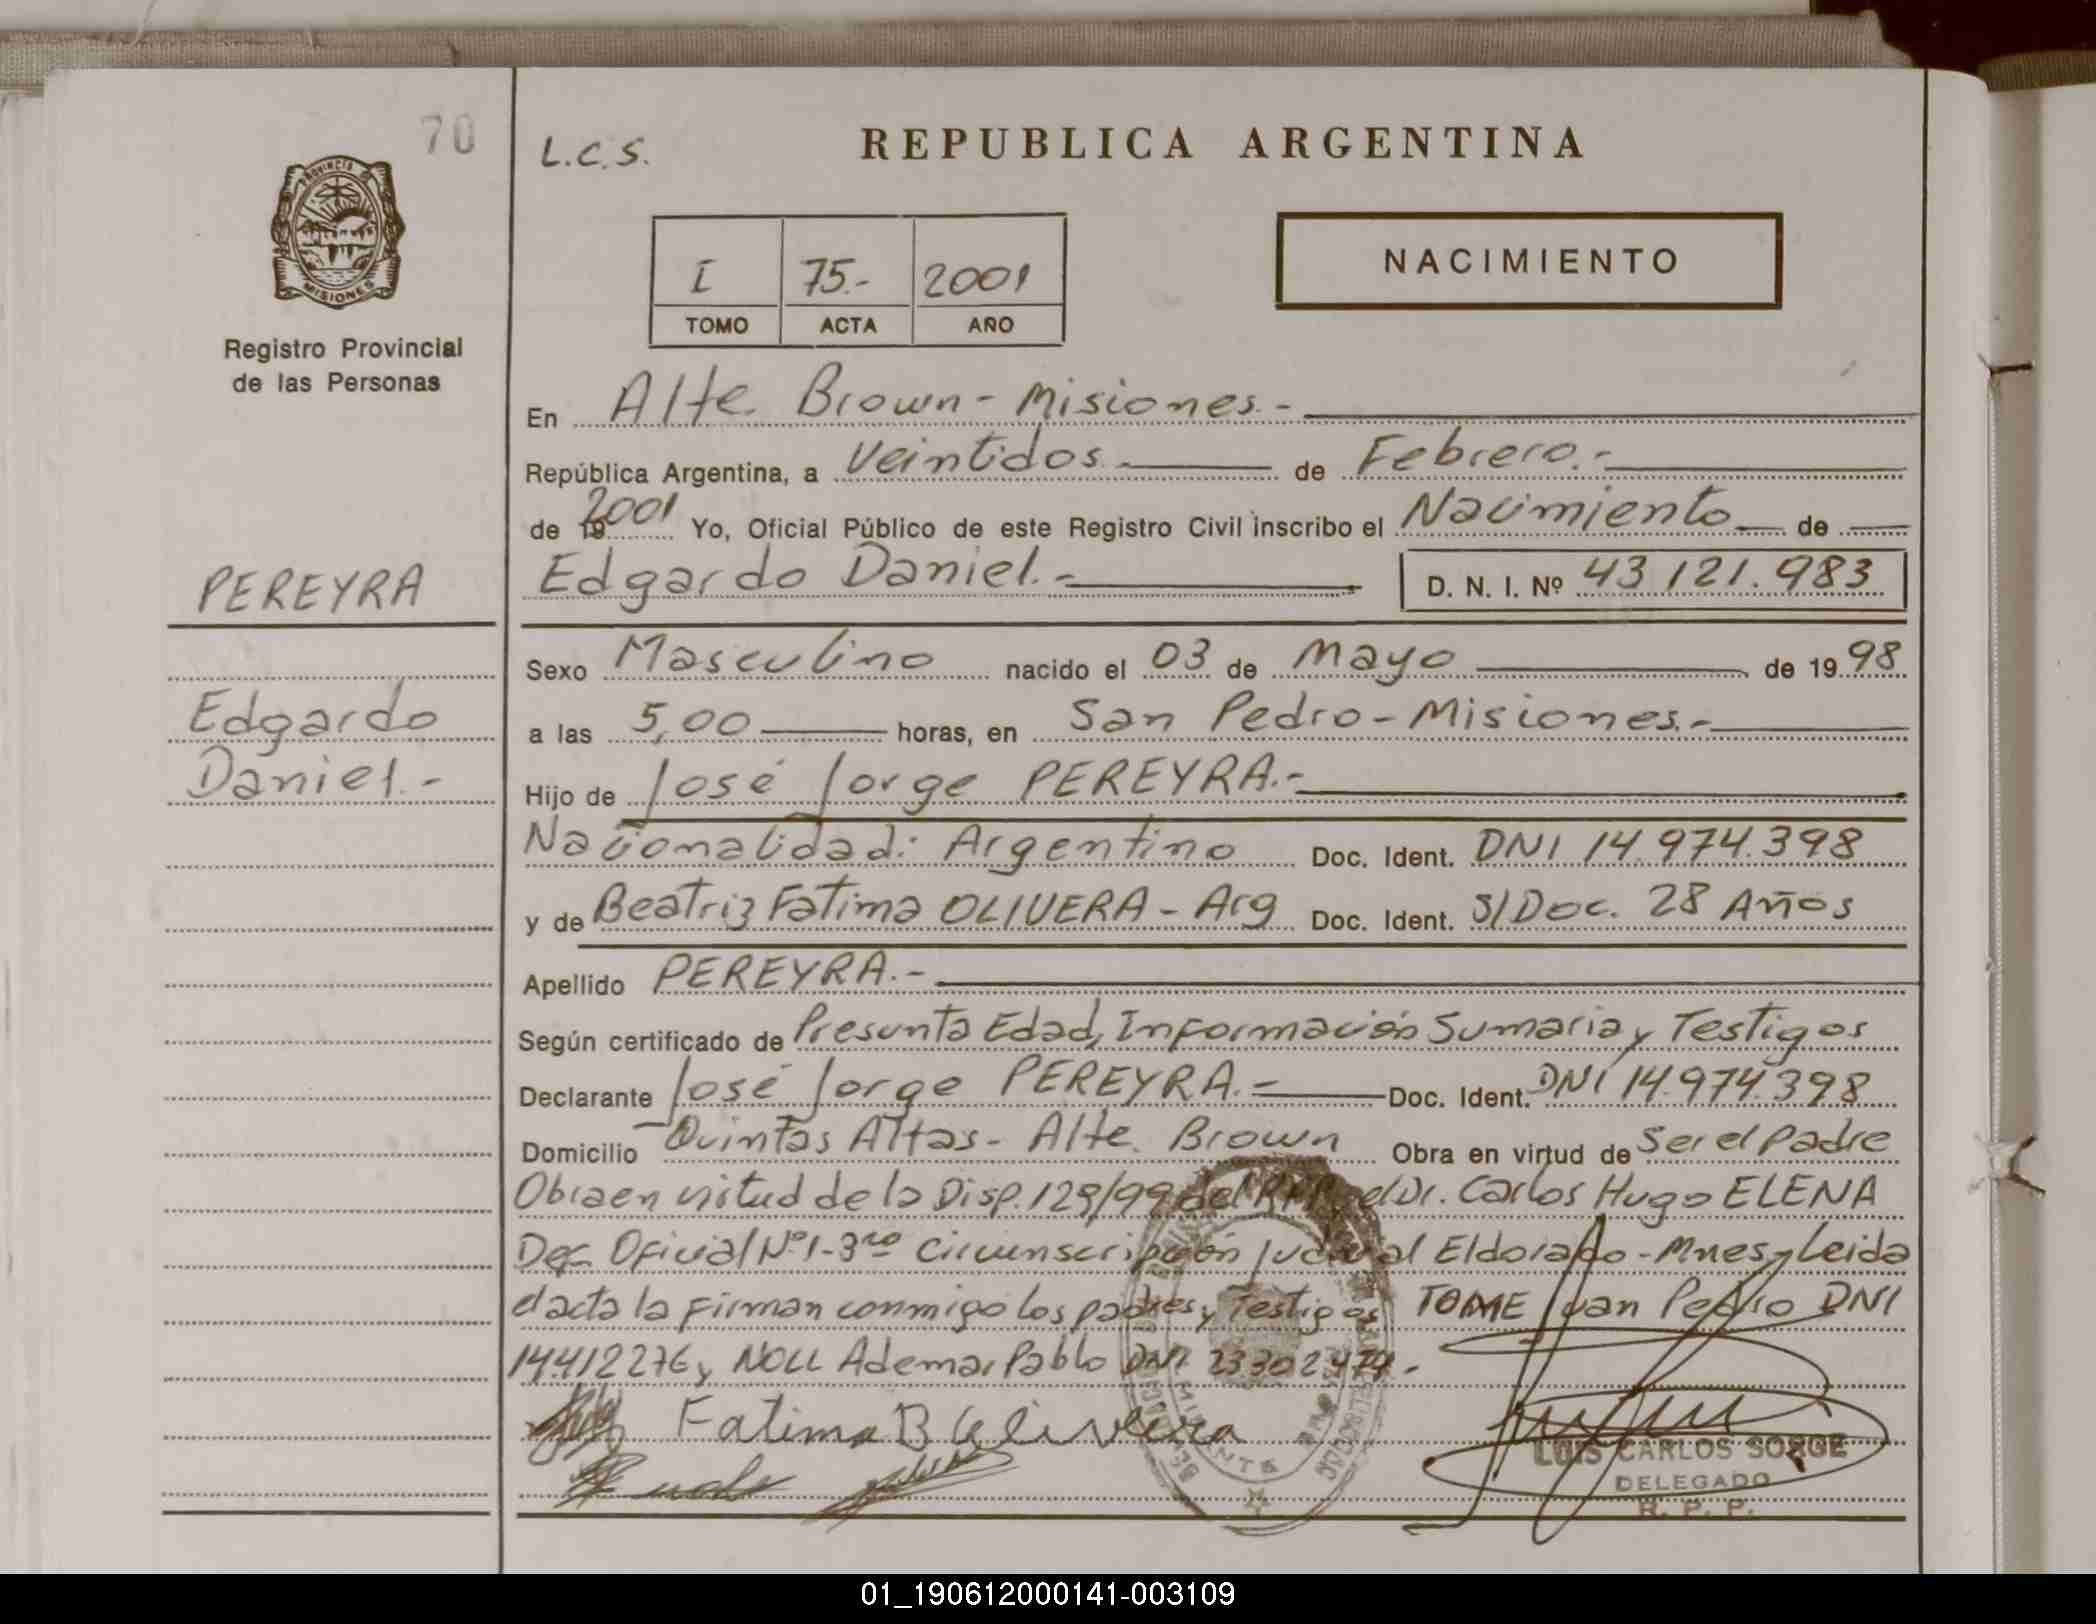 70
L.C.S.
REPUBLICA ARGENTINA
PROVINCIA
MISIONES
Registro Provincial
de las Personas
I 75.- 2001
TOMO ACTA AÑO
NACIMIENTO
En Alte. Brown - Misiones.-
República Argentina, a Veintidos.- de Febrero.-
de 19 2001 Yo, Oficial Público de este Registro Civil inscribo el Nacimiento de
Edgardo Daniel.- D. N. I. Nº 43 121.983
PEREYRA
Edgardo
Daniel.-
Sexo Masculino nacido el 03 de Mayo de 19 98
a las 5,00 horas, en San Pedro - Misiones.-
Hijo de José Jorge PEREYRA.-
Nacionalidad: Argentino Doc. Ident. DNI 14.974.398
y de Beatriz Fatima OLIVERA - Arg Doc. Ident. S/Doc. 28 Años
Apellido PEREYRA.-
Según certificado de Presunta Edad, Información Sumaria y Testigos
Declarante José Jorge PEREYRA.- Doc. Ident. DNI 14.974.398
Domicilio Quintas Altas - Alte. Brown Obra en virtud de Ser el Padre
Obra en virtud de la Disp. 129/99 del el Dr. Carlos Hugo ELENA
Def. Oficial Nº 1 - 3ra Circunscripción Judicial Eldorado - Mnes y Leida
el acta la firman conmigo los padres y Testigos TOME Juan Pedro DNI
14.412276 y NOLL Ademar Pablo DNI 23302474.-
Fatima B Olivera
LUIS CARLOS SORGE
DELEGADO
R. P. P.
01_190612000141-003109